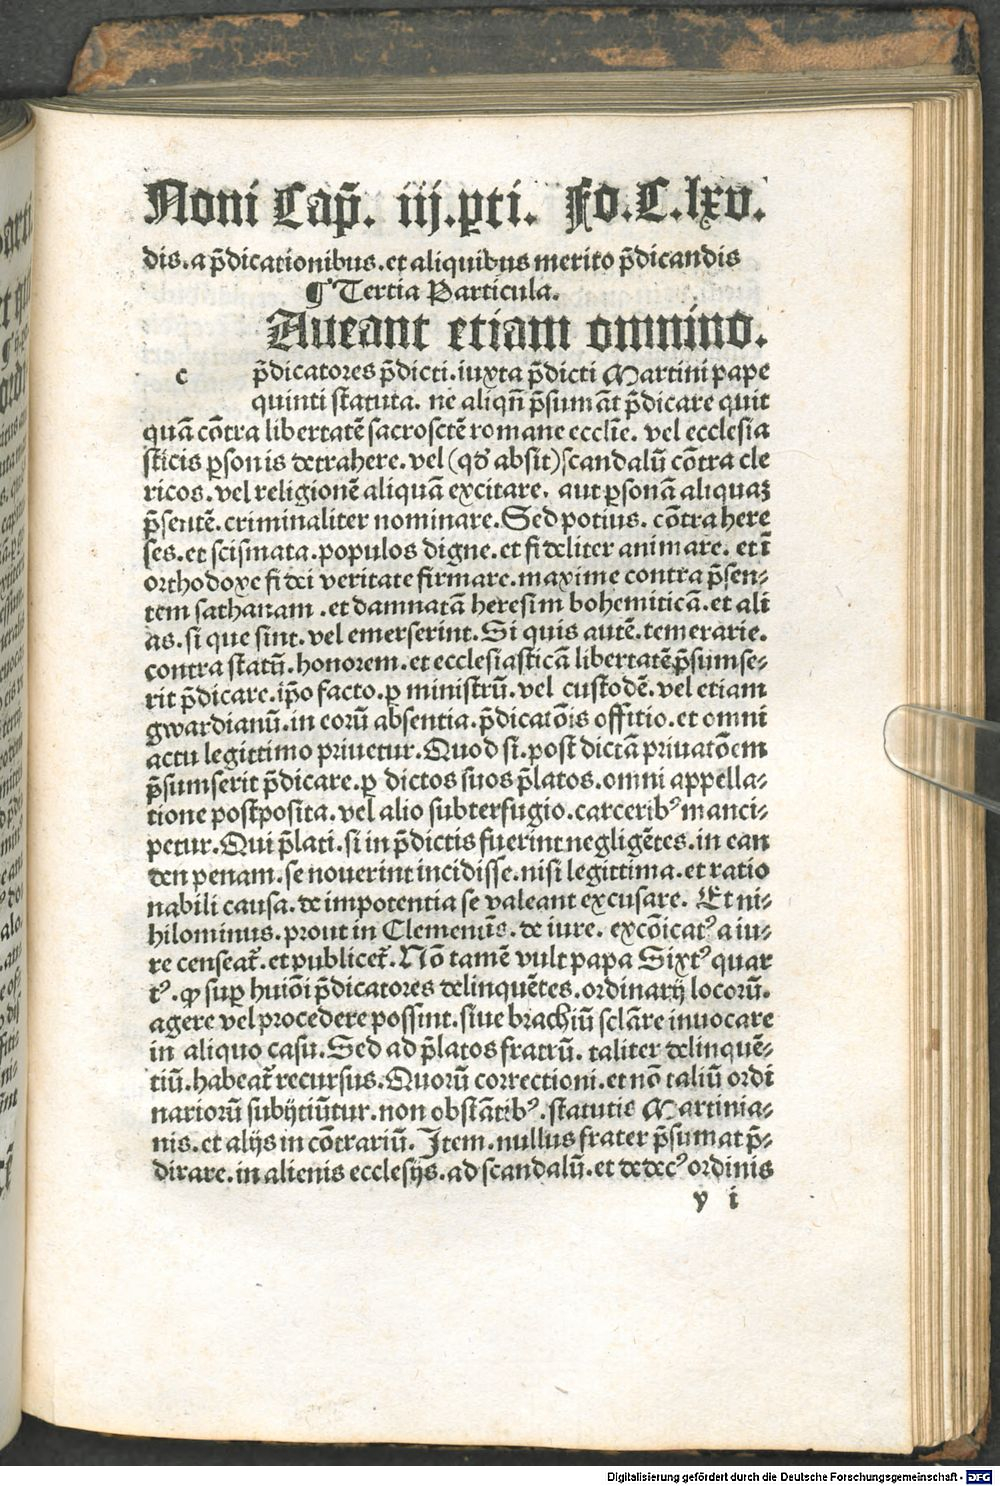 Noni Cap̄. iij.p̲ti. Fo.C.lxv.
dis.a p̄dicationibus.et aliquibus merito p̄dicandis
¶ Tertia Particula.
Aueant etiam omnino.
c p̄dicatores p̄dicti.iuxta p̄dicti Martini pape
quinti statuta. ne aliqñ p̄sumāt p̄dicare quit
quā cōtra libertatē sacrosctē romane ecclie. vel ecclesia
sticis ꝑsonis detrahere.vel (qđ absit)scandalū cōtra cle
ricos.vel religionē aliquā excitare. aut ꝑsonā aliquaꝫ
p̄sentē.criminaliter nominare.Sed potius. cōtra here
ses.et scismata.populos digne.et fideliter animare. et ī
orthodoxe fidei veritate firmare.maxime contra p̄sen⸗
tem sathanam.et damnatā heresim bohemiticā.et ali
as.si que sint.vel emerserint.Si quis autē.temerarie.
contra statū.honorem.et ecclesiasticā libertatē p̄sumse⸗
rit p̄dicare.ip̄o facto.ꝑ ministrū.vel custodē.vel etiam
gwardianū.in eorū absentia.p̄dicatōis offitio.et omni
actu legittimo priuetur.Quod si.post dictā priuatōem
p̄sumserit p̄dicare.ꝑ dictos suos p̄latos.omni appella⸗
tione postposita.vel alio subterfugio.carceribꝰ manci⸗
petur.Qui p̄lati.si in p̄dictis fuerint negligētes.in ean
den penam.se nouerint incidisse.nisi legittima.et ratio
nabili causa.de impotentia se valeant excusare. Et ni⸗
hilominus.prout in Clementīs.de iure. excōicatꝰ a iu⸗
re censeat᷑.et publicet᷑.Nō tamē vult papa Sixtꝰ quar
tꝰ.ꝙ suꝑ huiōi p̄dicatores delinquētes.ordinarij locorū.
agere vel procedere possint.siue brachiū sclāre inuocare
in aliquo casu.Sed ad p̄latos fratrū. taliter delinquē⸗
tiū.habeat᷑ recursus.Quorū correctioni.et nō taliū ordi
nariorū subijtiūtur.non obstātibꝰ.statutis Martinia⸗
nis.et alijs in cōtrariū. Item.nullus frater p̄sumat p̄⸗
dirare.in alienis ecclesijs.ad scandalū.et dedecꝰ ordinis
y i
Digitalisierung gefördert durch die Deutsche Forschungsgemeinschaft - DFG